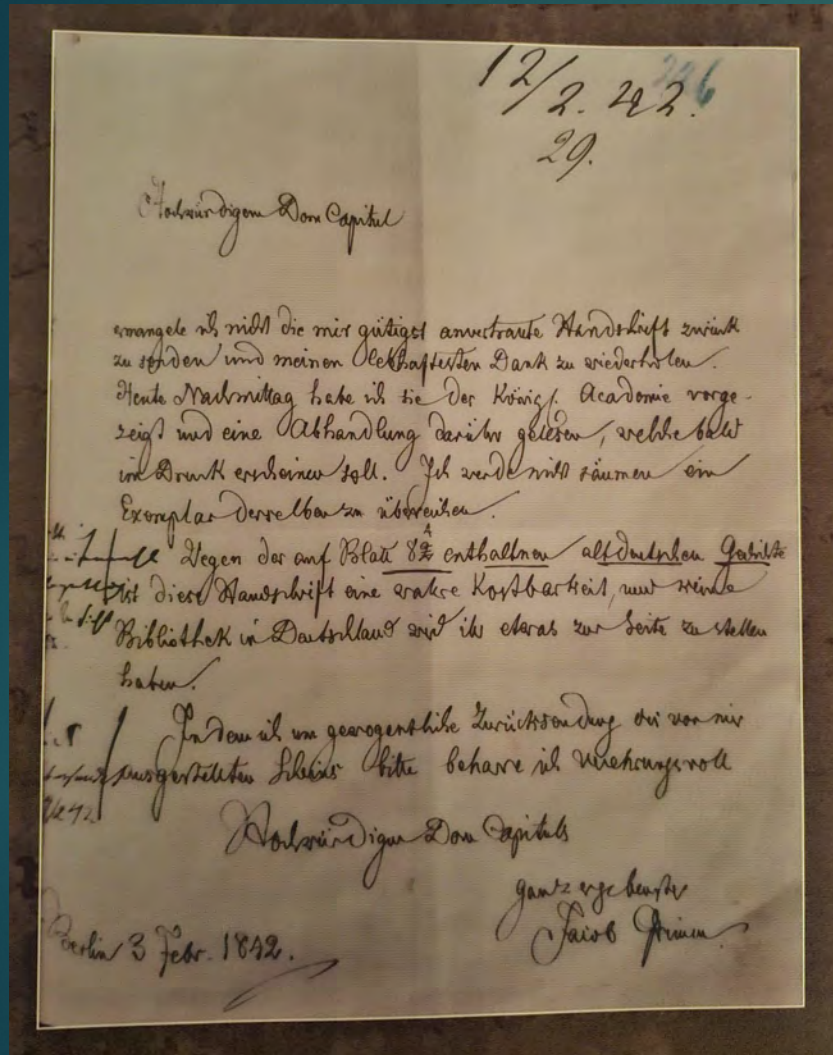 12/2. 42.
29.
Hochwürdigem Dom Capitul
ermangele ich nicht die mir gütigst anvertraute Handschrift zurück
zu senden und meinen lebhaftesten Dank zu wiederholen.
Heute Nachmittag habe ich sie der Königl. Academie vorge-
zeigt und eine Abhandlung darüber gelesen, welche bald
im Druck erscheinen soll. Ich werde nicht säumen ein
Exemplar derselben zu überreichen.
Wegen der auf Blatt 84 enthaltnen altdeutschen Gedichte
ist diese Handschrift eine wahre Kostbarkeit, und keine
Bibliothek in Deutschland wird ihr etwas zur Seite zu stellen
haben.
Indem ich um gewogentliche Zurücksendung des von mir
ausgestellten Scheins bitte beharre ich verehrungsvoll
Hochwürdigen Dom Capituls
ganz ergebenster
Jacob Grimm
Berlin 3 Febr. 1842.